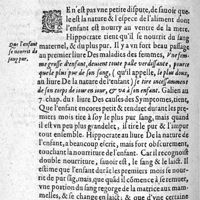 En'est pas vne petite dispute, de sauoir quel-
le est la nature & l'espece de l'aliment dont
l'enfant est nourry au ventre de la mere.
Hippocrate tient qu'il se nourrit du sang
maternel, & du plus pur. Il y a vn fort beau passage
Que l'enfant
se nourrit du
sang pur.
au premier liure Des maladies des femmes,
grosse d'enfant, deuient toute palle verdissante, pource
que le plus pur de son sang, (qu'il appelle, le plus doux,
au liure De la nature de l'enfant) se tire incessamment
de son corps de iour en iour, & va à son enfant. Galien au
7. chap. du liure Des causes des Symptomes, tient,
Que l'enfant encores petit & tendre durant les pre-
miers mois tire à soy le plus pur sang, mais quand il
est vn peu plus grandelet, il tire le pur &
d'Hippocrate
touchant la nourriture de l'enfant. Car il recognoit
double nourriture, sauoit est, le sang & le laict. Il
veut que l'enfant durant les premiers mois se nour-
rit de pur sang, mais que quand il commence à se mou-
du sang regorge de la matrice aux mam-
melles, & se change en laict, dont